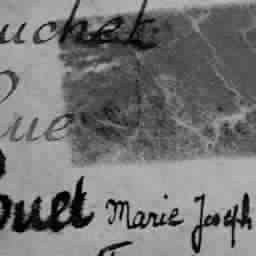 uchet
ue
ouet Marie Joseph